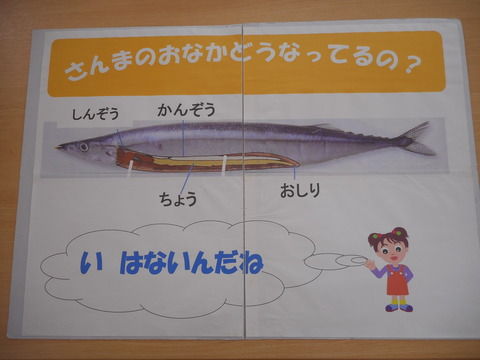 さんまのおなかどうなってるの？
しんぞう
かんぞう
ちょう
おしり
い はないんだね